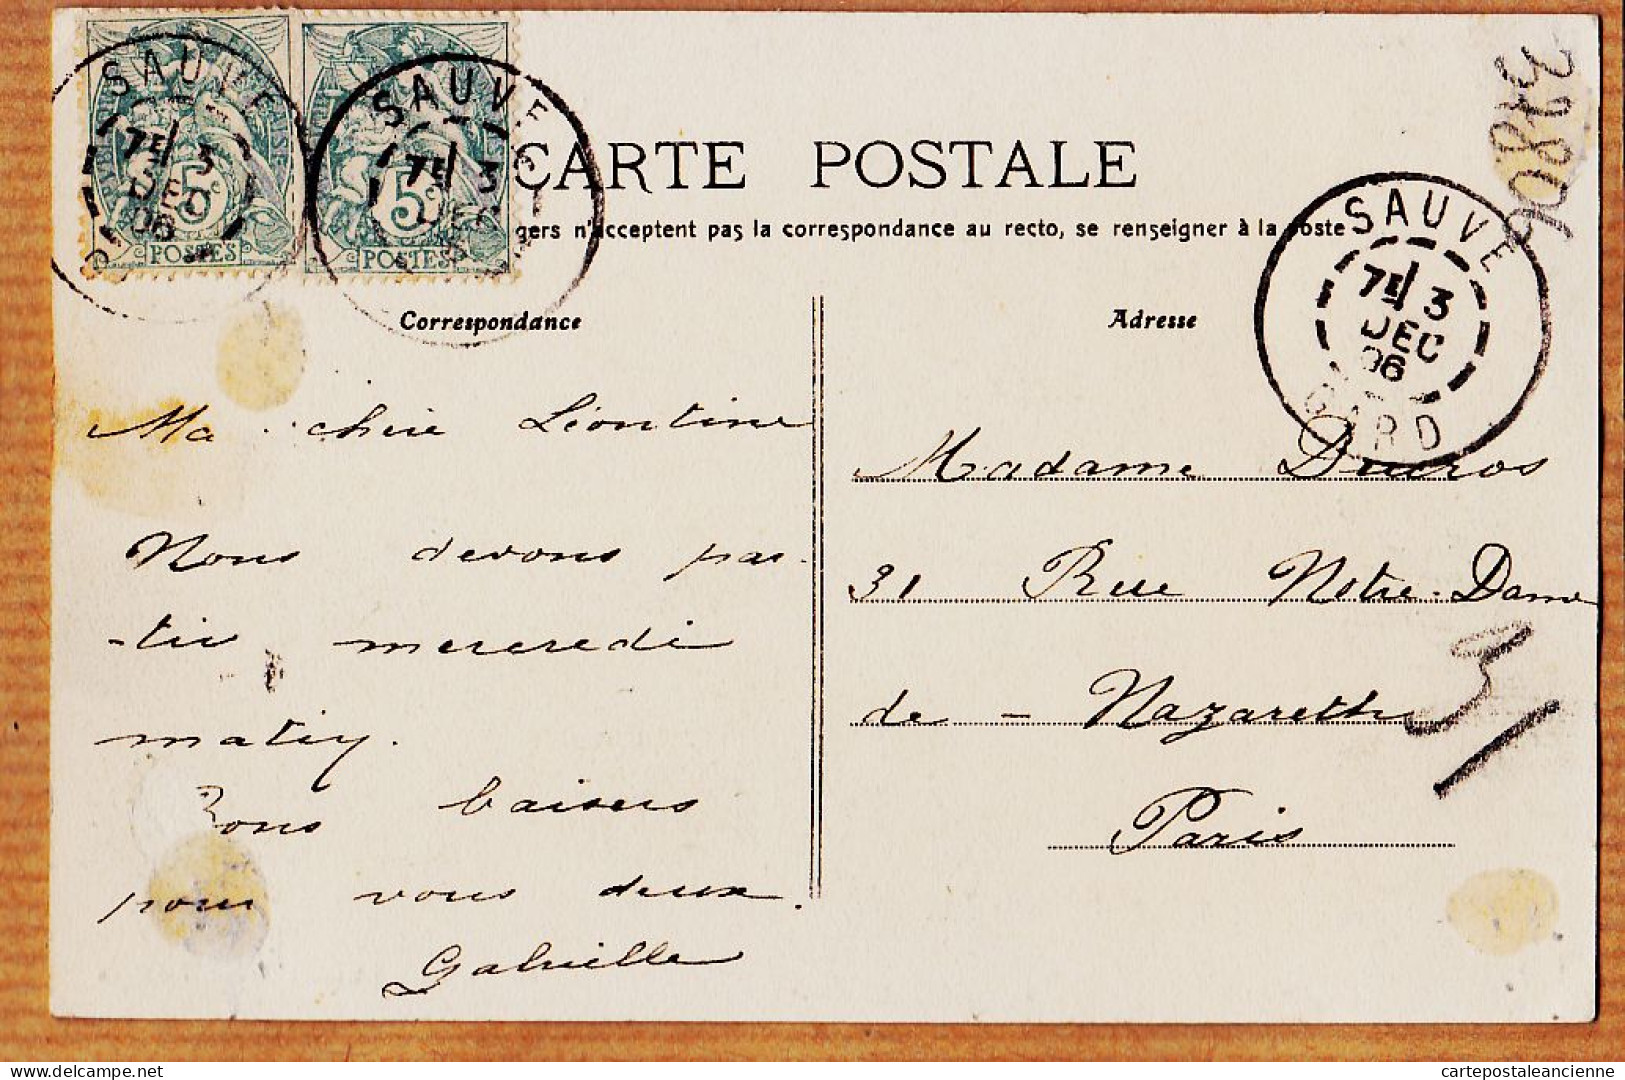 SAUVE
7E 3
DEC
06
5c
POSTES
SAUVE
7E 3
DEC
5c
POSTES
33807
CARTE POSTALE
gers n'acceptent pas la correspondance au recto, se renseigner à la Poste
SAUVE
7E 3
DEC
06
GARD
Correspondance
Adresse
Ma chère Léontine
Nous devons par-
-tir mercredi
matin.
Bons baisers
pour vous deux.
Gabrielle
Madame Ducros
31 Rue Notre-Dame
de - Nazareth
Paris
cartepostaleancienne
delcampe.net
cartepostaleancienne